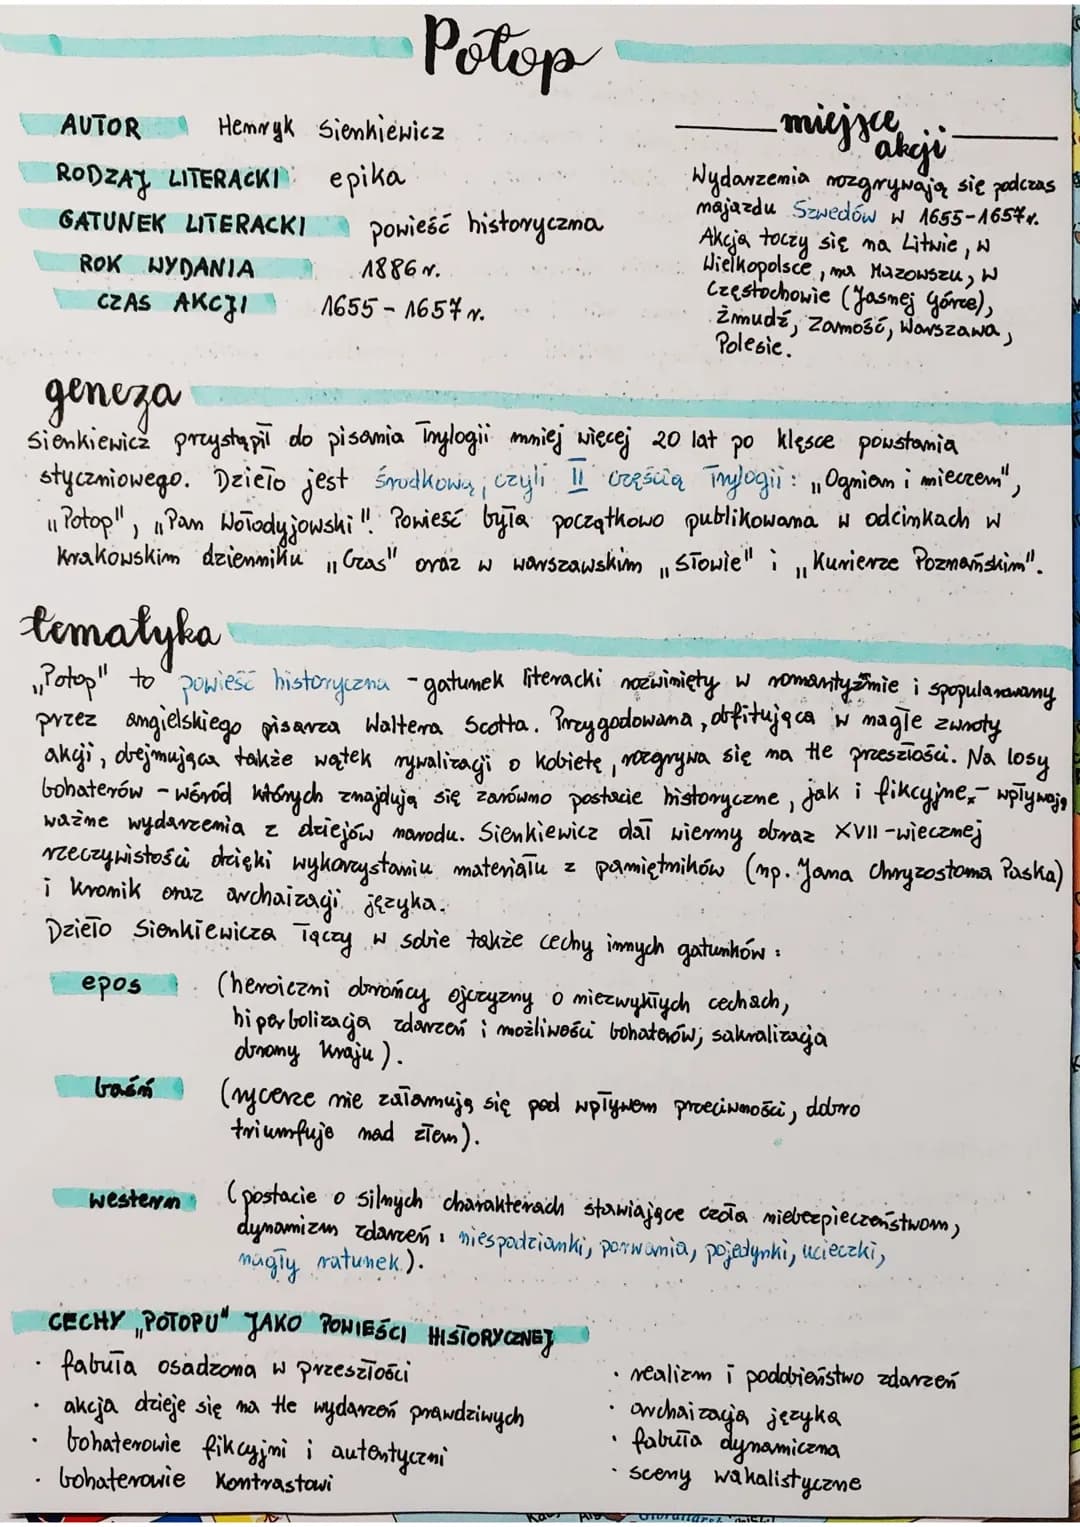 Potop
AUTOR Henryk Sienkiewicz
RODZAJ LITERACKI: epika
GATUNEK LITERACKI powieść historyczna
ROK WYDANIA 1886 r.
CZAS AKCJI 1655 - 1657 r.
miejsce
akcji
Wydarzenia rozgrywają się podczas
najazdu Szwedów w 1655-1657r.
Akcja toczy się na Litwie, w
Wielkopolsce, na Mazowszu, w
Częstochowie (Jasnej Górze),
Żmudź, Zamość, Warszawa,
Polesie.
geneza
Sienkiewicz przystąpił do pisania Trylogii mniej więcej 20 lat po klęsce powstania
styczniowego. Dzieło jest środkową, czyli II częścią Trylogii: „Ogniem i mieczem",
„Potop", „Pan Wołodyjowski". Powieść była początkowo publikowana w odcinkach w
krakowskim dzienniku „Czas" oraz w warszawskim „Słowie" i „Kurierze Poznańskim".
tematyka
„Potop" to powieść historyczna - gatunek literacki rozwinięty w romantyźmie i spopularowany
przez angielskiego pisarza Waltera Scotta. Przygodowana, obfitująca w nagłe zwroty
akcji, obejmująca także wątek rywalizacji o kobietę, rozgrywa się na tle przeszłości. Na losy
bohaterów - wśród których znajdują się zarówno postacie historyczne, jak i fikcyjne, - wpływają
ważne wydarzenia z dziejów narodu. Sienkiewicz dał wierny obraz XVII-wiecznej
rzeczywistości dzięki wykorzystaniu materiału z pamiętników (np. Jana Chryzostoma Paska)
i kronik oraz archaizacji języka.
Dzieło Sienkiewicza łączy w sobie także cechy innych gatunków:
epos (heroiczni obrońcy ojczyzny o niezwykłych cechach,
hiperbolizacja zdarzeń i możliwości bohaterów; sakralizacja
obrony kraju).
baśń (rycerze nie załamują się pod wpływem przeciwności, dobro
triumfuje nad złem).
western (postacie o silnych charakterach stawiające czoła niebezpieczeństwom,
dynamizm zdarzeń: niespodzianki, porwania, pojedynki, ucieczki,
nagły ratunek).
CECHY „POTOPU" JAKO POWIEŚCI HISTORYCZNEJ
· fabuła osadzona w przeszłości
· akcja dzieje się na tle wydarzeń prawdziwych
· bohaterowie fikcyjni i autentyczni
· bohaterowie kontrastowi
· realizm i poddobieństwo zdarzeń
· archaizacja języka
· fabuła dynamiczna
· sceny wakalistyczne